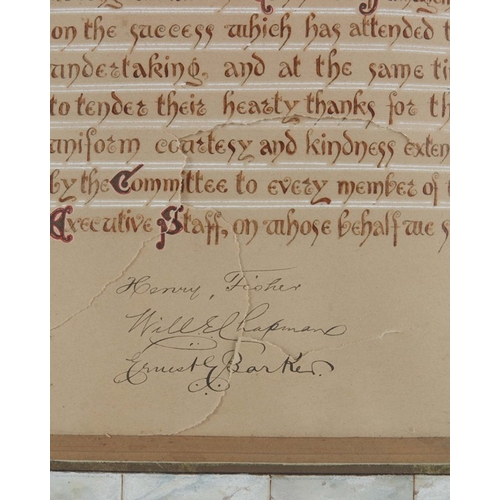 on the success which has attended t
undertaking, and at the same ti
to tender their hearty thanks for th
uniform courtesy and kindness exten
by the Committee to every member of t
Executive Staff, on whose behalf we s
Henry Fisher
Will E Chapman
Ernest G Barker.